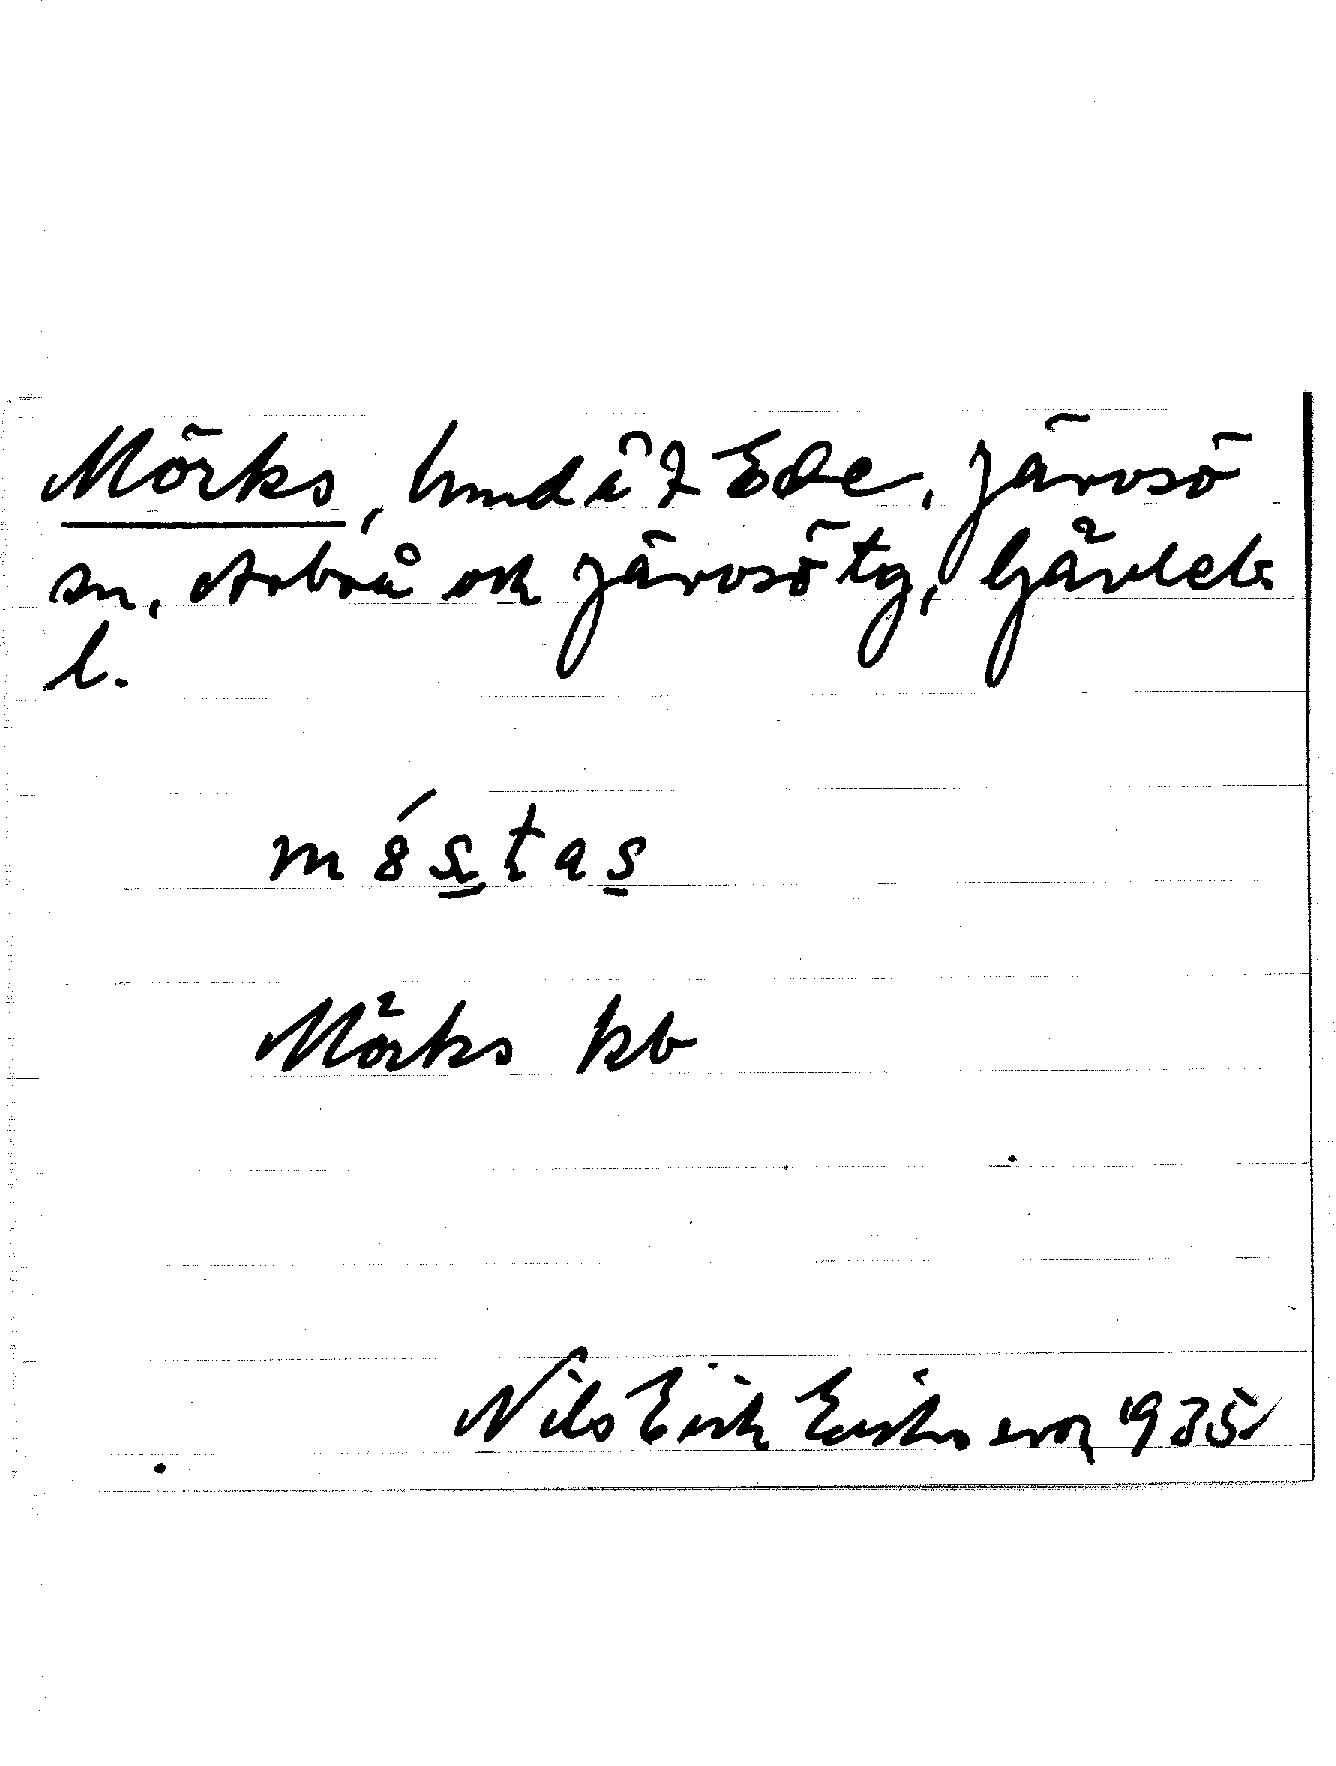 Mörks, hmd å 2 Ede, Järvsö
sn, Arbrå och Järvsö tg, Gävlebs
l.
Mörks kb
Nils Erik Eriksson 1935